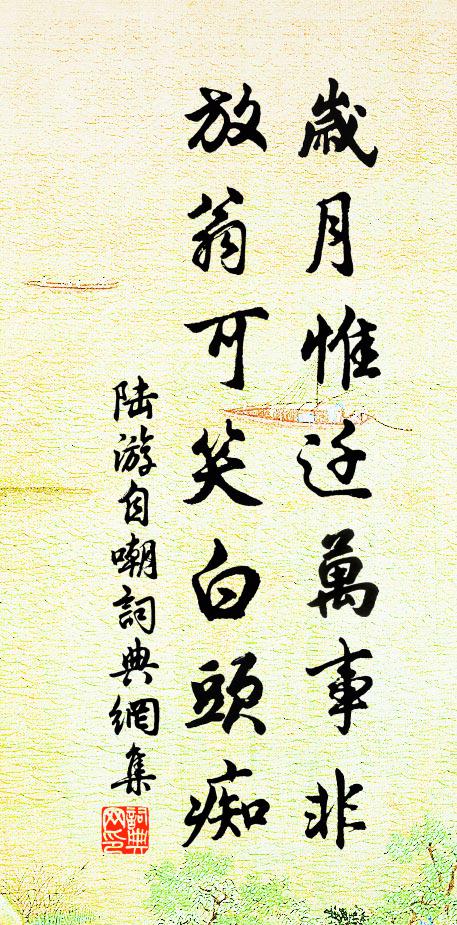 歲月惟迁萬事非
放翁可笑白頭痴
陆游自嘲詞典網集
詞典网印